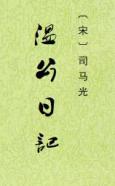 〔宋〕司马光
温公日记